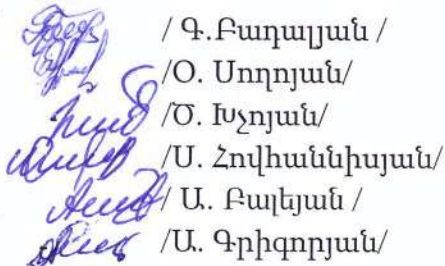 / Գ.Բադալյան /
/Օ. Սողոյան/
/Ծ. Խչոյան/
/Ս. Հովհաննիսյան/
/ Ա. Բալեյան /
/Ա. Գրիգորյան/